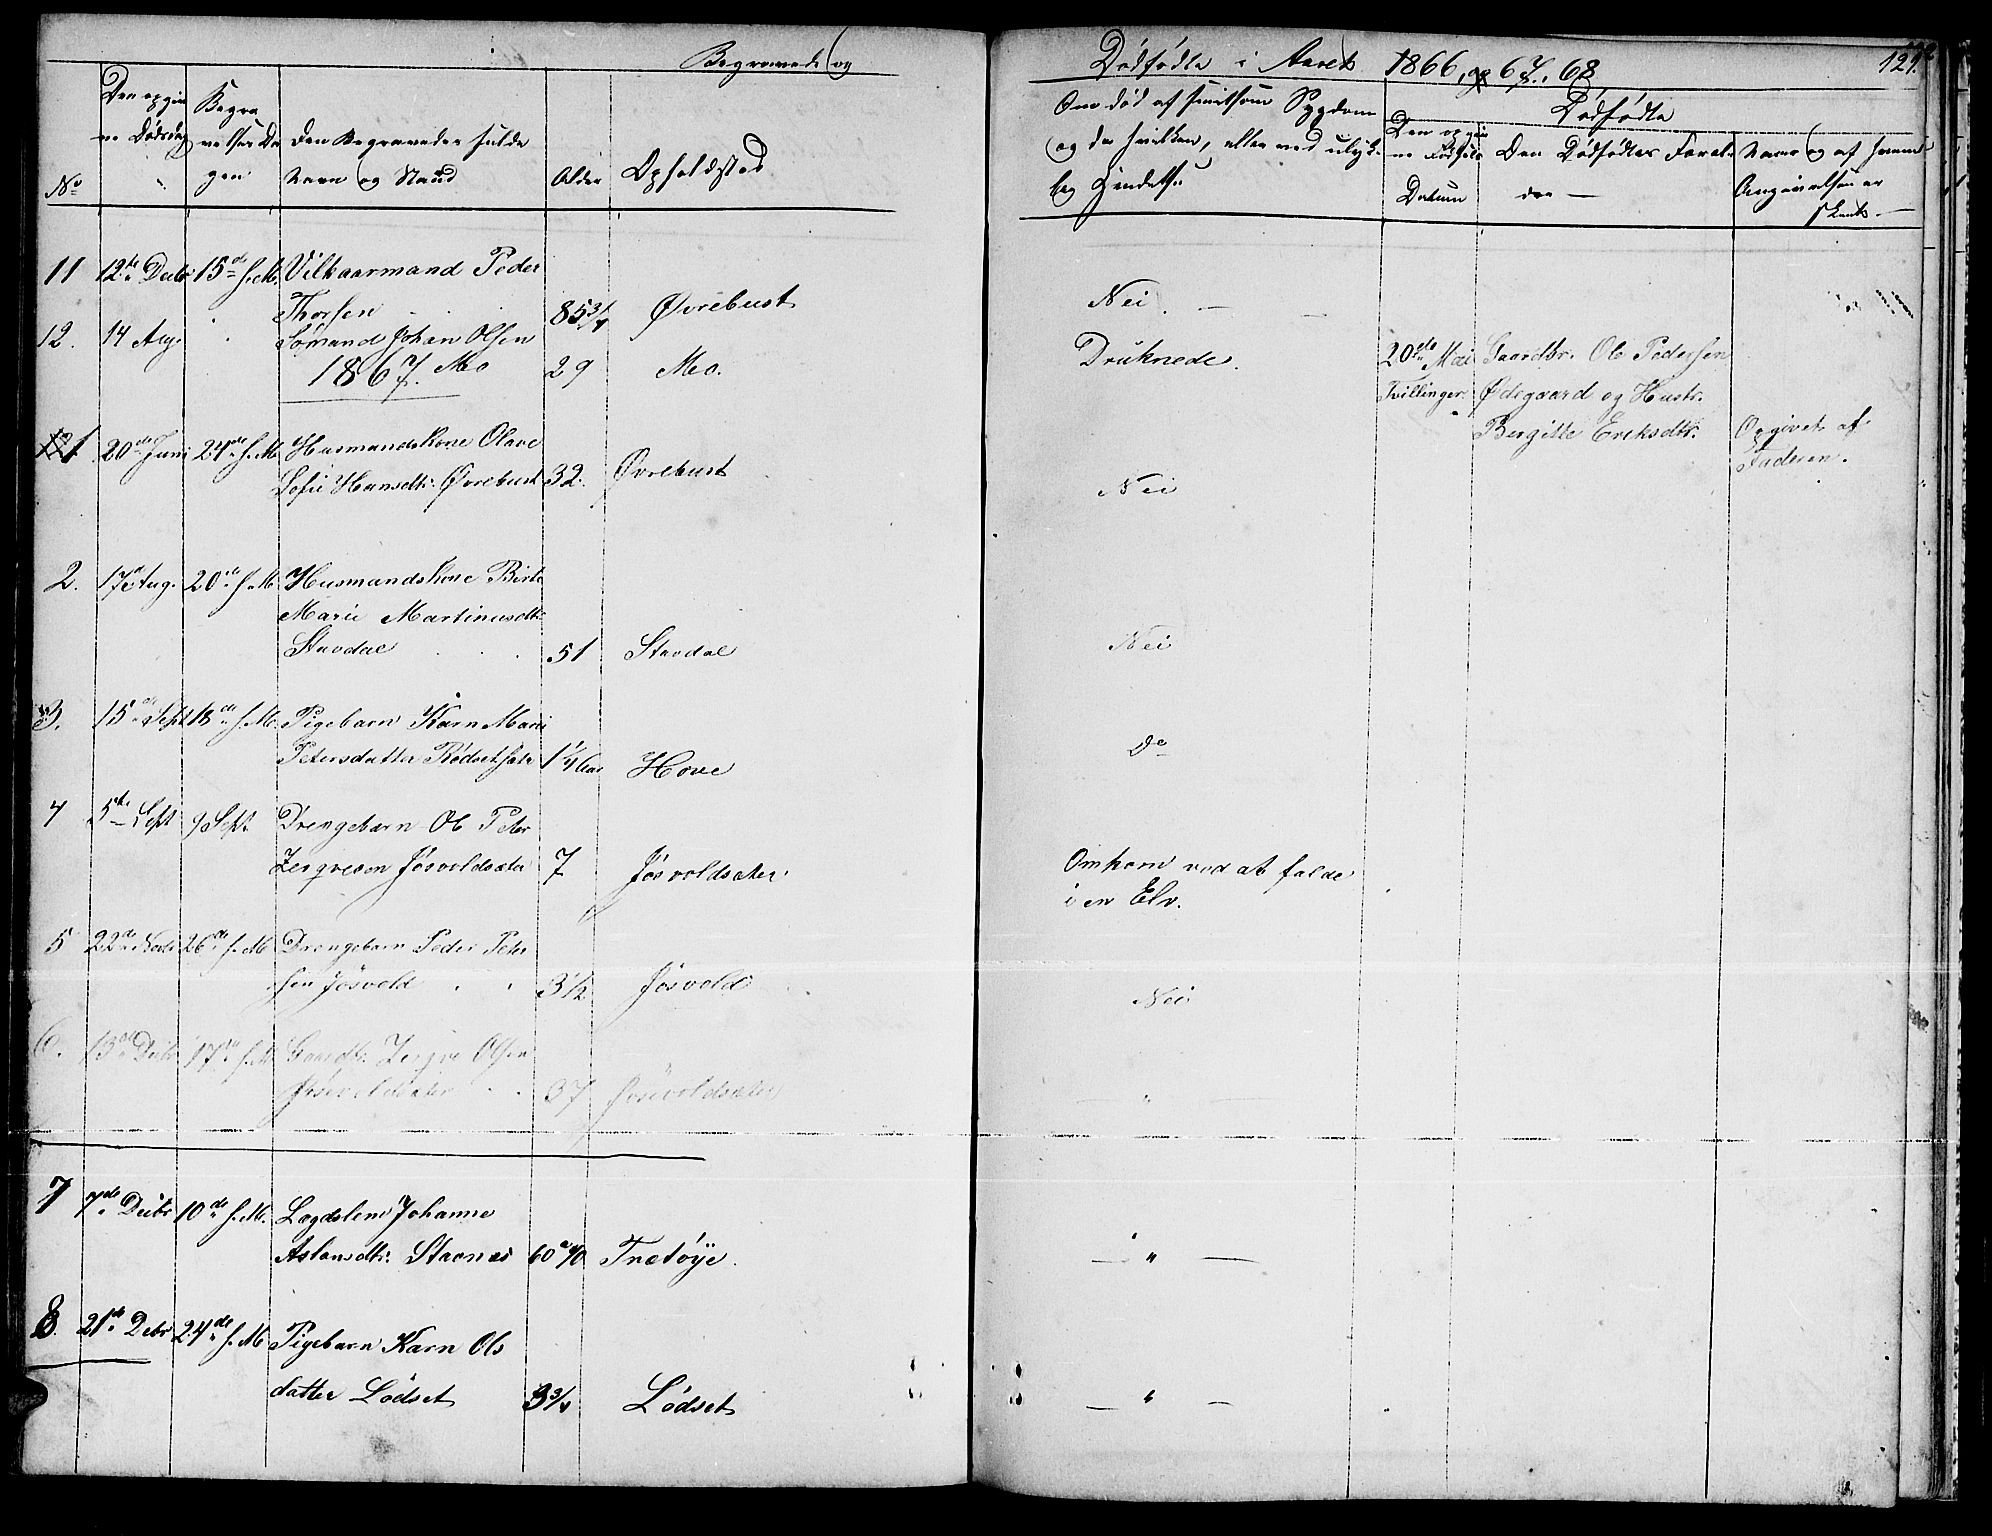 Begravede og Dødfødte i Aaret 1866, og 67, 68
121.
No
Den opgivne Dødsdag
Begravelses Dagen
Den Begravedes fulde Navn og Stand
Alder
Opholdsted
Om død af smitsom Sygdom og da hvilken, eller ved ulykkelig Hændelse
Dødfødte
Den opgivne Fødsels Datum
Den Dødfødtes Forældre —
Naar og af hvem Angivelsen er skeet. —
11 12te Decbr 15de s.M. Vilkaarmand Peder
Thorsen 85 3/4 Øvrebust Nei. —
12. 14 Aug. Sømand Johan Olsen
Mo 29 Mo. Druknede.
20de Mai Gaardbr. Ole Pedersen
Tvillinger Ødegaard og Hustr.
Bergitte Eriksdtr. Opgivet af
Faderen.
1867.
1 20de Juni 24de s.M. Husmandskone Olave
Sofie Hansdtr. Øvrebust 32. Øvrebust Nei
2. 17de Aug. 20de s.M. Husmandskone Birte
Marie Martinusdtr.
Stavdal 51 Stavdal Nei
3. 15de Sept 18de s.M. Pigebarn Karn Marie
Petersdatter Rødsetsæter 1 1/4 Aar Hove Do
4 5te Sept 9 Sept. Drengebarn Ole Peter
Zergveson Jösvoldsæter 7 Jösvoldsæter. Omkom ved at falde
i en Elv.
5 22de Novbr 26de s.M. Drengebarn Peder Peter
sen Jösvold 3 1/2 Jösvold Nei
6. 13de Decbr 17de s.M. Gaardbr. Zergve Olsen
Jösvoldsæter 37 Jösvoldsæter — " —
7 7de Decbr 10de s.M. Lægdslem Johanne
Aslaksdtr. Stavnes Trætöÿe. — " —
8. 21de Debr 24de s.M. Pigebarn Karn Ols
datter Lödset 3 3/4 Lödset — " —